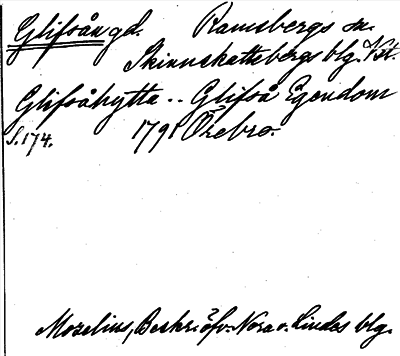 Glifsån gd. Ramsbergs sn.
Skinnskattebergs blg. Vstl.
Glifsåhytta .. Glifså Egendom
S. 174. 1791 Örebro.
Mozelius, Beskr. öfv. Nora o. Lindes blg.